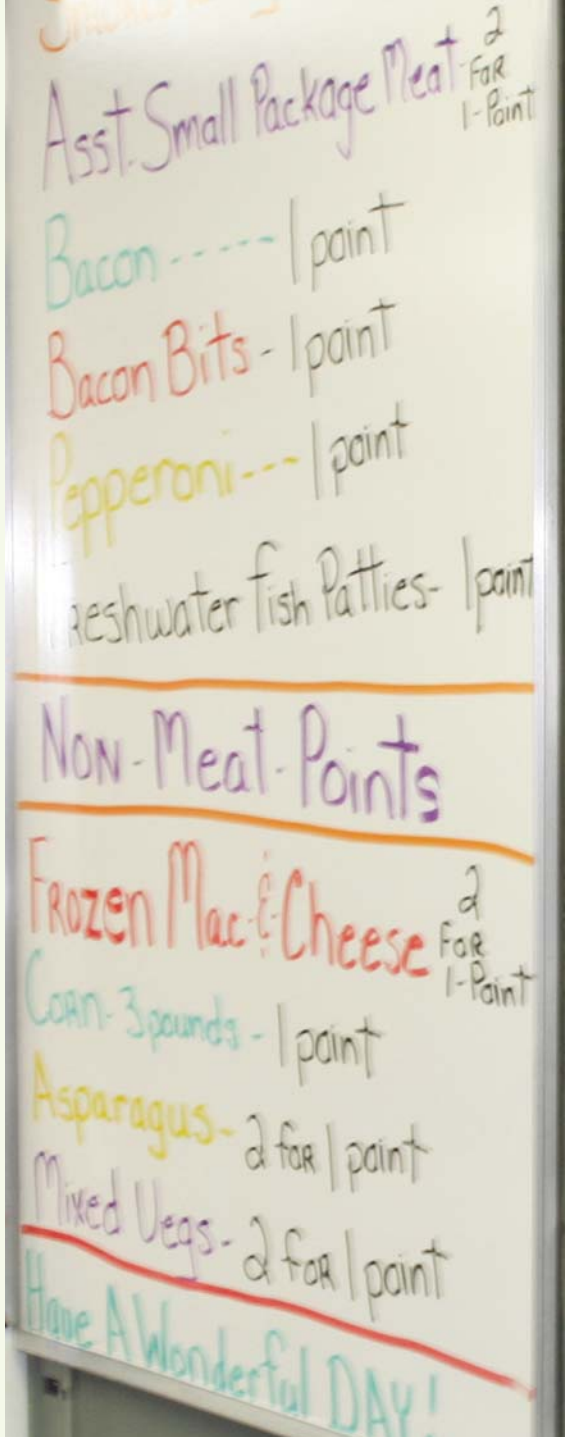 Asst. Small Package Meat - 2 FOR 1-Point
Bacon ----- 1 point
Bacon Bits - 1 point
Pepperoni --- 1 point
Freshwater Fish Patties - 1 point
NON-Meat-Points
FROZEN Mac & Cheese 2 FOR 1-Point
CORN - 3 pounds - 1 point
Asparagus - 2 FOR 1 point
Mixed Vegs - 2 FOR 1 point
Have A Wonderful DAY!